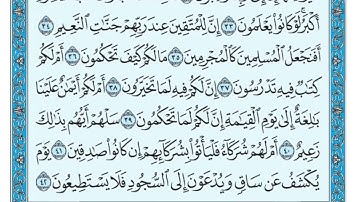 أَكْبَرُ لَوْ كَانُوا يَعْلَمُونَ ٣٣ إِنَّ لِلْمُتَّقِينَ عِندَ رَبِّهِمْ جَنَّٰتِ ٱلنَّعِيمِ ٣٤
أَفَنَجْعَلُ ٱلْمُسْلِمِينَ كَٱلْمُجْرِمِينَ ٣٥ مَا لَكُمْ كَيْفَ تَحْكُمُونَ ٣٦ أَمْ لَكُمْ
كِتَٰبٌ فِيهِ تَدْرُسُونَ ٣٧ إِنَّ لَكُمْ فِيهِ لَمَا تَخَيَّرُونَ ٣٨ أَمْ لَكُمْ أَيْمَٰنٌ عَلَيْنَا
بَٰلِغَةٌ إِلَىٰ يَوْمِ ٱلْقِيَٰمَةِ إِنَّ لَكُمْ لَمَا تَحْكُمُونَ ٣٩ سَلْهُمْ أَيُّهُم بِذَٰلِكَ
زَعِيمٌ ٤٠ أَمْ لَهُمْ شُرَكَآءُ فَلْيَأْتُوا۟ بِشُرَكَآئِهِمْ إِن كَانُوا۟ صَٰدِقِينَ ٤١ يَوْمَ
يُكْشَفُ عَن سَاقٍ وَيُدْعَوْنَ إِلَى ٱلسُّجُودِ فَلَا يَسْتَطِيعُونَ ٤٢